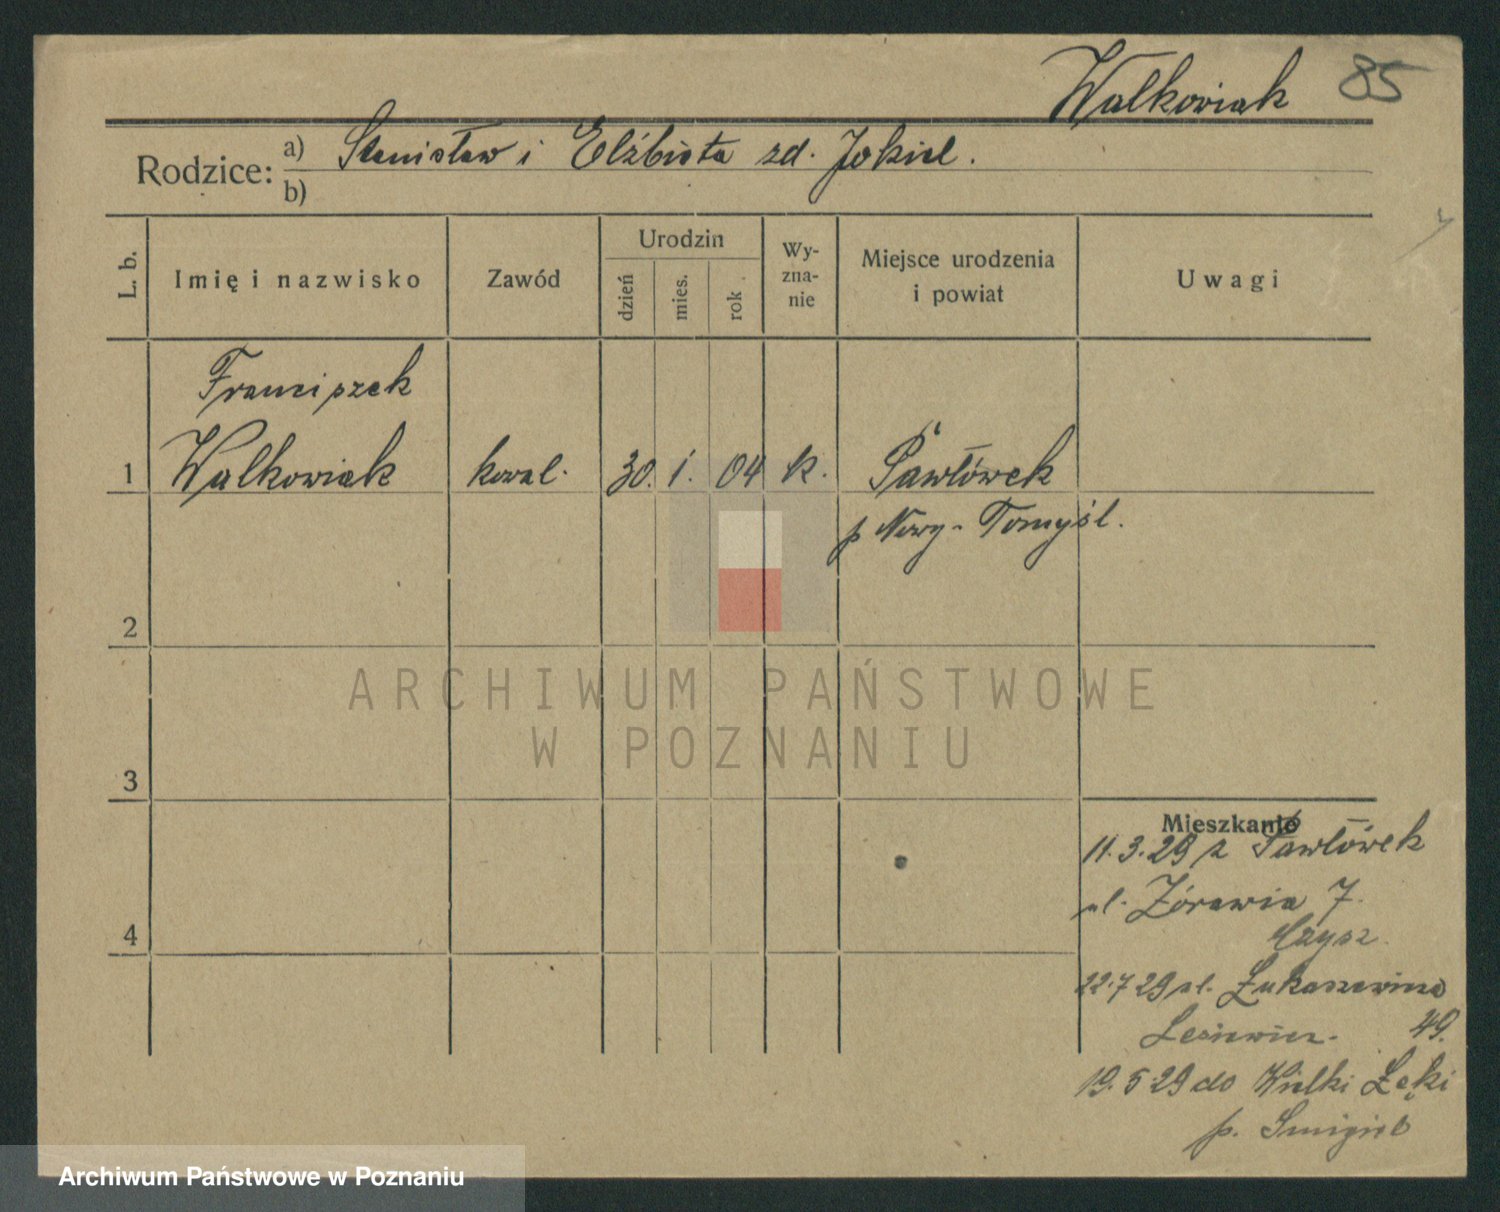 Walkowiak 85
Rodzice: a) Stanisław i Elżbieta zd. Jokiel.
b)
L. b. Imię i nazwisko Zawód Urodzin dzień mies. rok Wy-zna-nie Miejsce urodzenia i powiat Uwagi
Franciszek
1 Walkowiak kowal. 30. 1. 04 k. Pawłówek
p Nowy-Tomyśl.
2
ARCHIWUM PAŃSTWOWE
W POZNANIU
3
Mieszkanie
11.3.29 z Pawłówek
ul. Żórawia 7.
4
22.7 29 ul. Łukaszewicza
49.
19.5.29 do Wielki Łęki
p. Smigiel
Archiwum Państwowe w Poznaniu